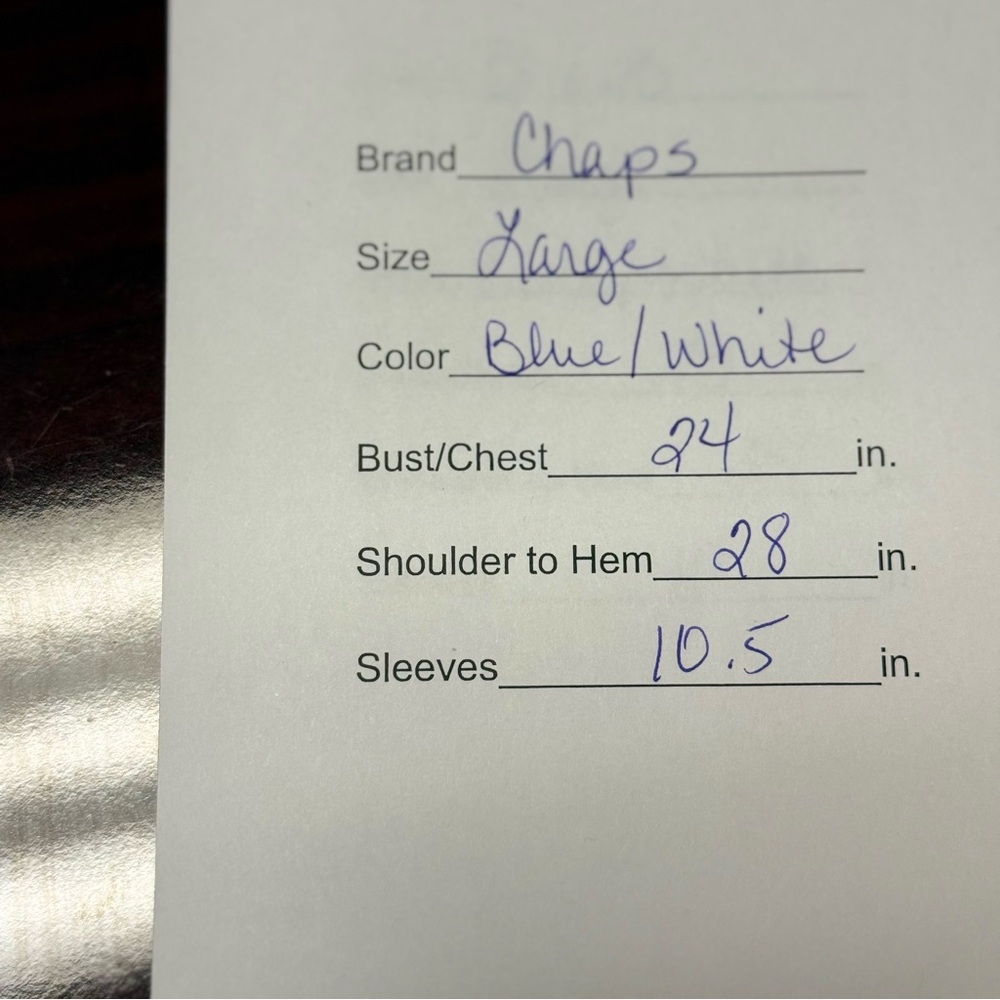 Brand Chaps
Size Large
Color Blue/White
Bust/Chest 24 in.
Shoulder to Hem 28 in.
Sleeves 10.5 in.